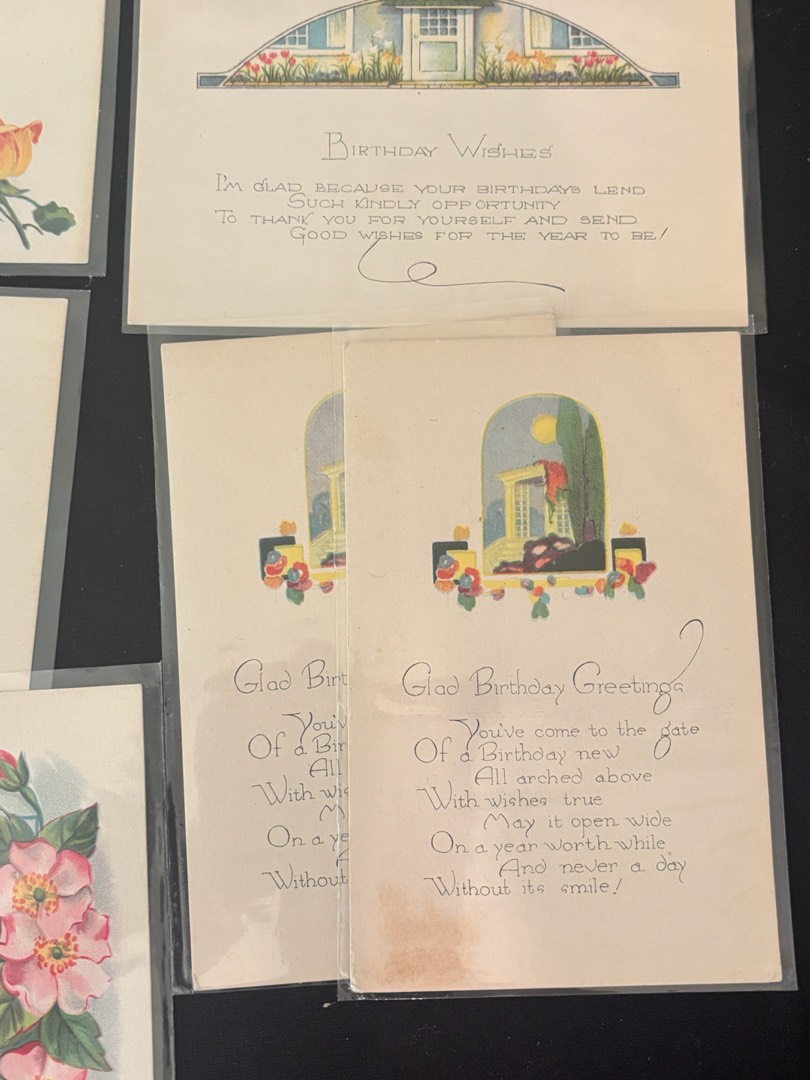 BIRTHDAY WISHES
I'M GLAD BECAUSE YOUR BIRTHDAYS LEND
SUCH KINDLY OPPORTUNITY
TO THANK YOU FOR YOURSELF AND SEND
GOOD WISHES FOR THE YEAR TO BE!
Glad Birt
You'v
Of a Bir
All
With wis
M
On a ye
A
Without
Glad Birthday Greetings
You've come to the gate
Of a Birthday new
All arched above
With wishes true
May it open wide
On a year worth while
And never a day
Without its smile!